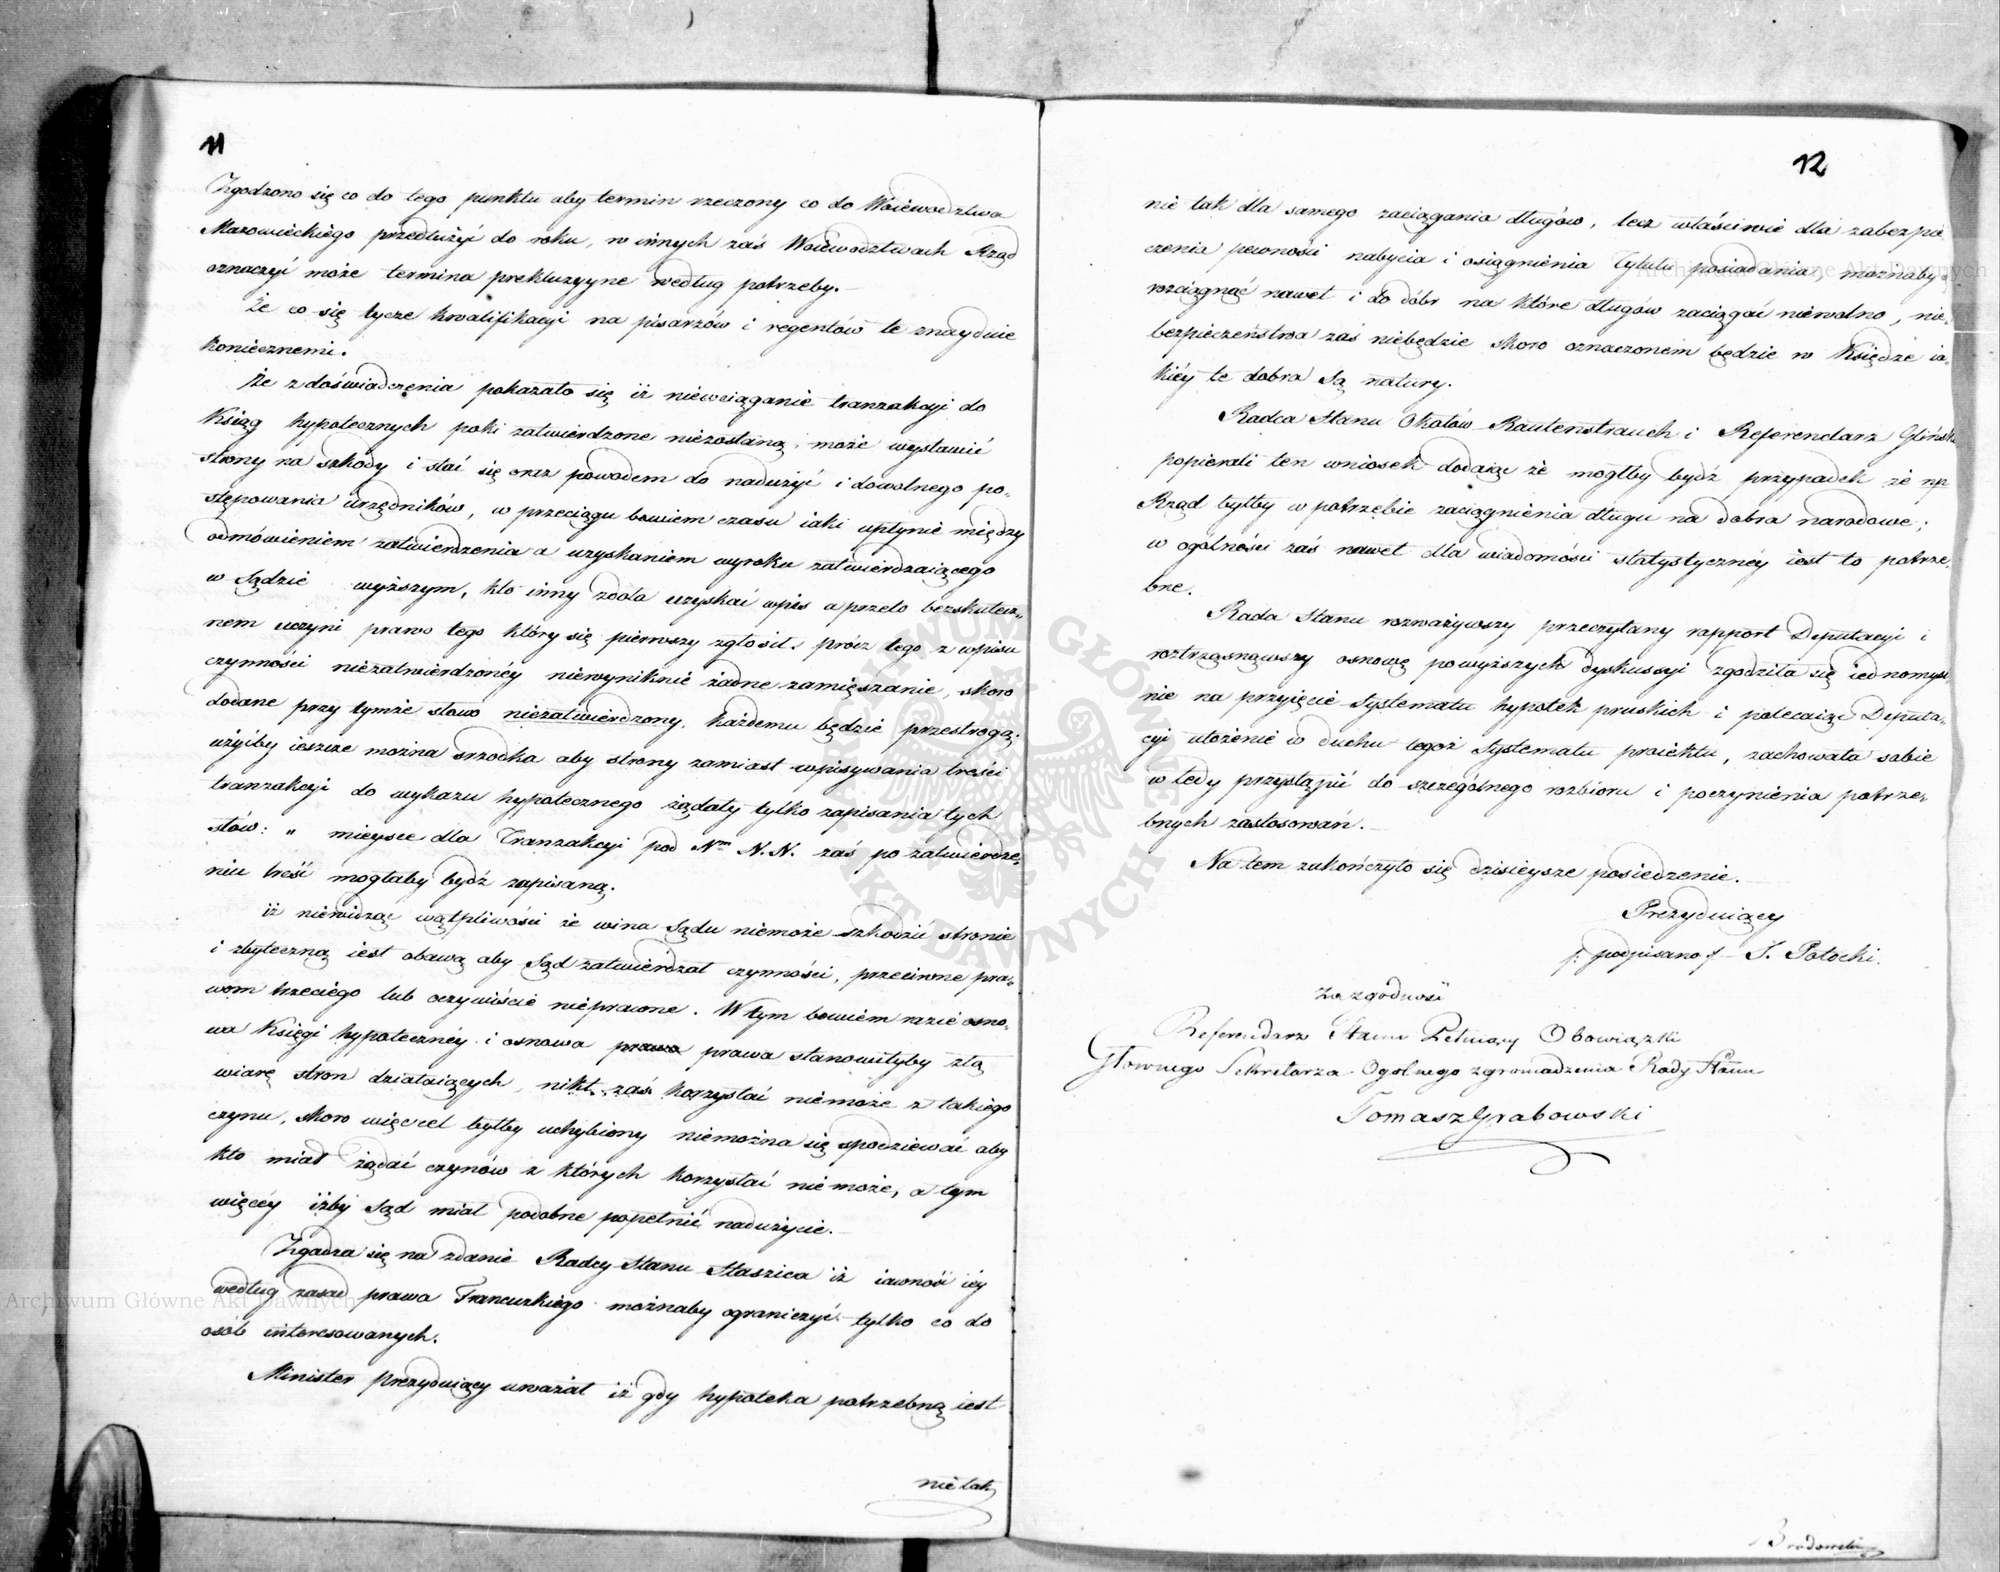 11
Zgodzono się co do tego punktu aby termin rzeczony co do Woiewodztwa
Mazowieckiego przedłużyć do roku, w innych zaś Woiewodztwach Rząd
oznaczyć może termina prekluzyyne według potrzeby.
Że co się tycze kwalifikacyi na pisarzów i regentów te znayduie
koniecznemi.
Że z doświadczenia pokazało się iż niewciąganie tranzakcyi do
Ksiąg hypotecznych poki zatwierdzone niezostaną, może wystawić
strony na szkody i stać się oraz powodem do nadużyć i dowolnego po-
stępowania urzędników, w przeciągu bowiem czasu iaki upłynie między
odmówieniem zatwierdzenia a uzyskaniem wyroku zatwierdzaiącego
w Sądzie wyższym, kto inny zdoła uzyskać wpis a przeto bezskutecz-
nem uczyni prawo tego który się pierwszy zgłosił. prócz tego z wpisu
czynności niezatwierdzonéy niewyniknie żadne zamięszanie, skoro
dodane przy tymże słowo niezatwierdzony, każdemu będzie przestrogą;
użyćby ieszcze można srzodka aby strony zamiast wpisywania treści
tranzakcyi do wykazu hypotecznego żądały tylko zapisania tych
słów: „ mieysce dla Tranzakcyi pod Nm N.N. zaś po zatwierdze-
niu treść mogłaby bydź zapisaną.
iż niewidząc wątpliwości że wina Sądu niemoże szkodzić stronie
i zbyteczną iest obawą aby Sąd zatwierdzał czynności, przeciwne pra-
wom trzeciego lub oczywiście nieprawne. W tym bowiem razie osno-
wa Księgi hypotecznéy i osnowa prawa prawa stanowiłyby złą
wiarę stron działaiących, nikt zaś korzystać niemoże z takiego
czynu, skoro więc cel byłby uchybiony niemożna się spodziewać aby
kto miał żądać czynów z których korzystać niemoże, a tym
więcéy iżby Sąd miał podobne popełnić nadużycie.
Zgadza się na zdanie Radcy Stanu Staszica iż iawność iéy
według zasad prawa Francuzkiego możnaby ograniczyć tylko co do
osób interesowanych.
Minister prezyduiący uważał iż gdy hypoteka potrzebną iest
nie tak
12
nie tak dla samego zaciągania długów, lecz właściwie dla zabezpie
czenia pewności nabycia i osiągnienia Tytułu posiadania, możnaby
rozciągnąć nawet i do dóbr na które długów zaciągać niewolno, nie-
bezpieczeństwa zaś niebędzie skoro oznaczonem będzie w Księdze ia-
kiéy te dobra są natury.
Radca Stanu Okołów Rautenstrauch i Referendarz Gliński
popierali ten wniosek dodaiąc że mogłby bydź przypadek że np
Rząd byłby w potrzebie zaciągnienia długu na dobra narodowe;
w ogólności zaś nawet dla wiadomości statystycznéy iest to potrze-
bne.
Rada Stanu rozważywszy przeczytany rapport Deputacyi i
roztrząsnąwszy osnowę powyższych dyskussyi zgodziła się iednomyśl
nie na przyięcie Systematu hypotek pruskich i polecaiąc Deputa-
cyi ułożenie w duchu tegoż Systematu proiektu, zachowała sobie
wtedy przystąpić do szczególnego rozbioru i poczynienia potrze-
bnych zastosowań.
Na tem zakończyło się dzisieysze posiedzenie.
Prezyduiący
/: podpisano /: S. Potocki.
Za zgodność
Referendarz Stanu Pełniący Obowiązki
Głownego Sekretarza Ogolnego zgromadzenia Rady Stanu
Tomasz Grabowski
Brodowski
Archiwum Główne Akt Dawnych
Archiwum Główne Akt Dawnych
ARCHIWUM GŁÓWNE AKT DAWNYCH